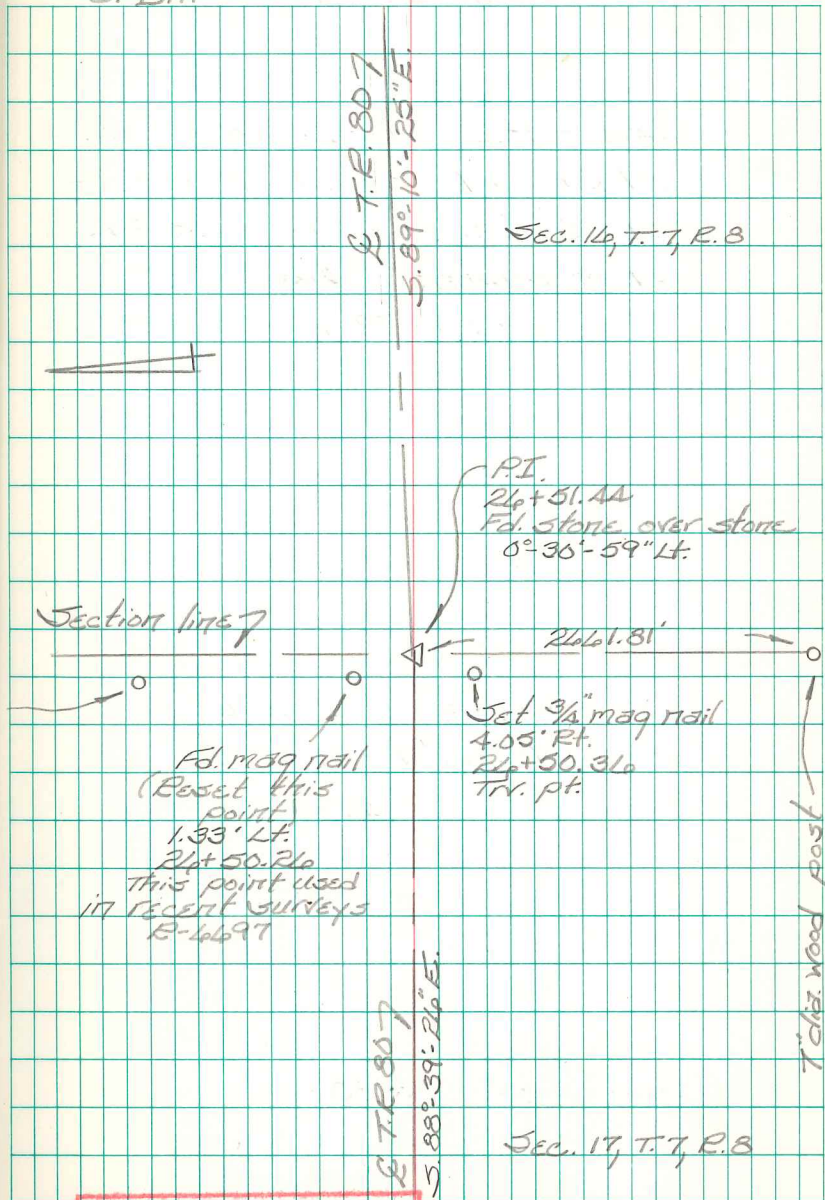 ℄ T.R. 80
S.89°-10'-25"E.
Sec. 16, T.7, R.8
P.I.
26+51.44
Fd. stone over stone
0°-30'-59" Lt.
Section line
2661.81'
Set 3/4" mag nail
4.05' Rt.
26+50.36
Trv. pt.
Fd. mag nail
(Reset this
point)
1.33' Lt.
26+50.26
This point used
in recent surveys
R-6697
7" dia. wood post
℄ T.R. 80
S.88°-39'-26"E.
Sec. 17, T.7, R.8